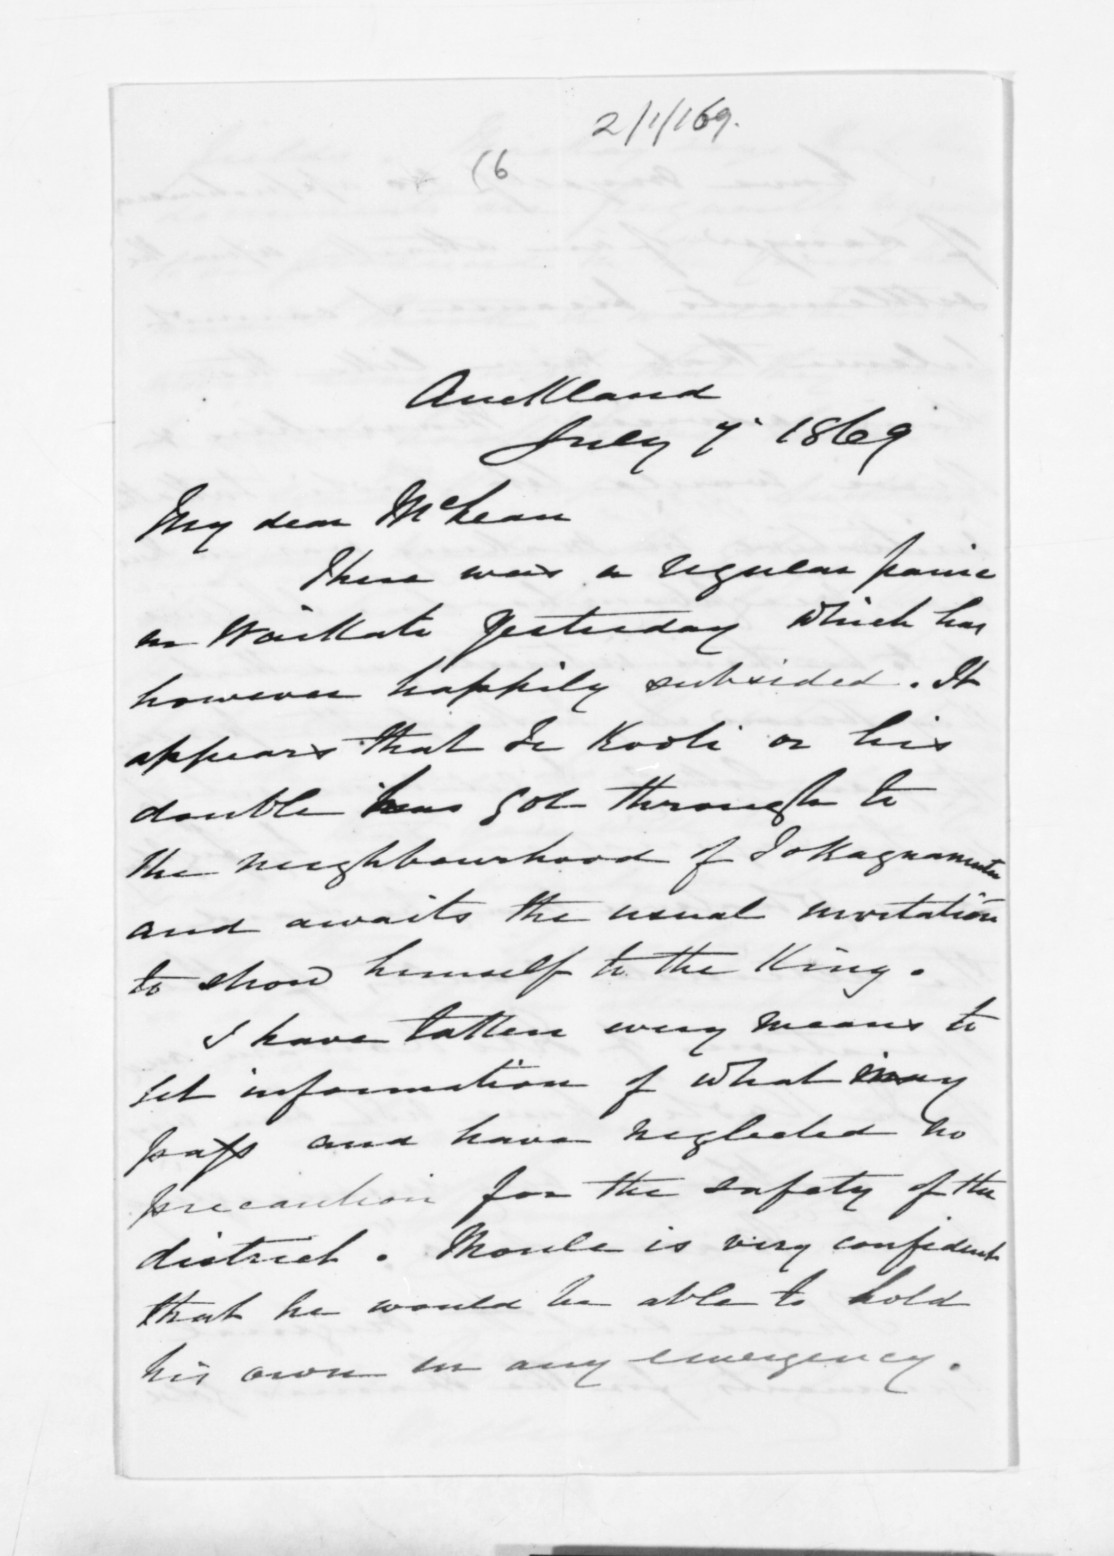 2/1/169.
(6
Auckland
July 7 1869
My dear McLean
There was a regular panic
in Waikato yesterday which has
however happily subsided. It
appears that Te Kooti or his
double has got through to
the neighbourhood of Tokagnamutu
and awaits the usual invitation
to show himself to the King.
I have taken every means to
get information of what may
pass and have neglected no
precaution for the safety of the
district. Moule is very confident
that he would be able to hold
his own in any emergency.